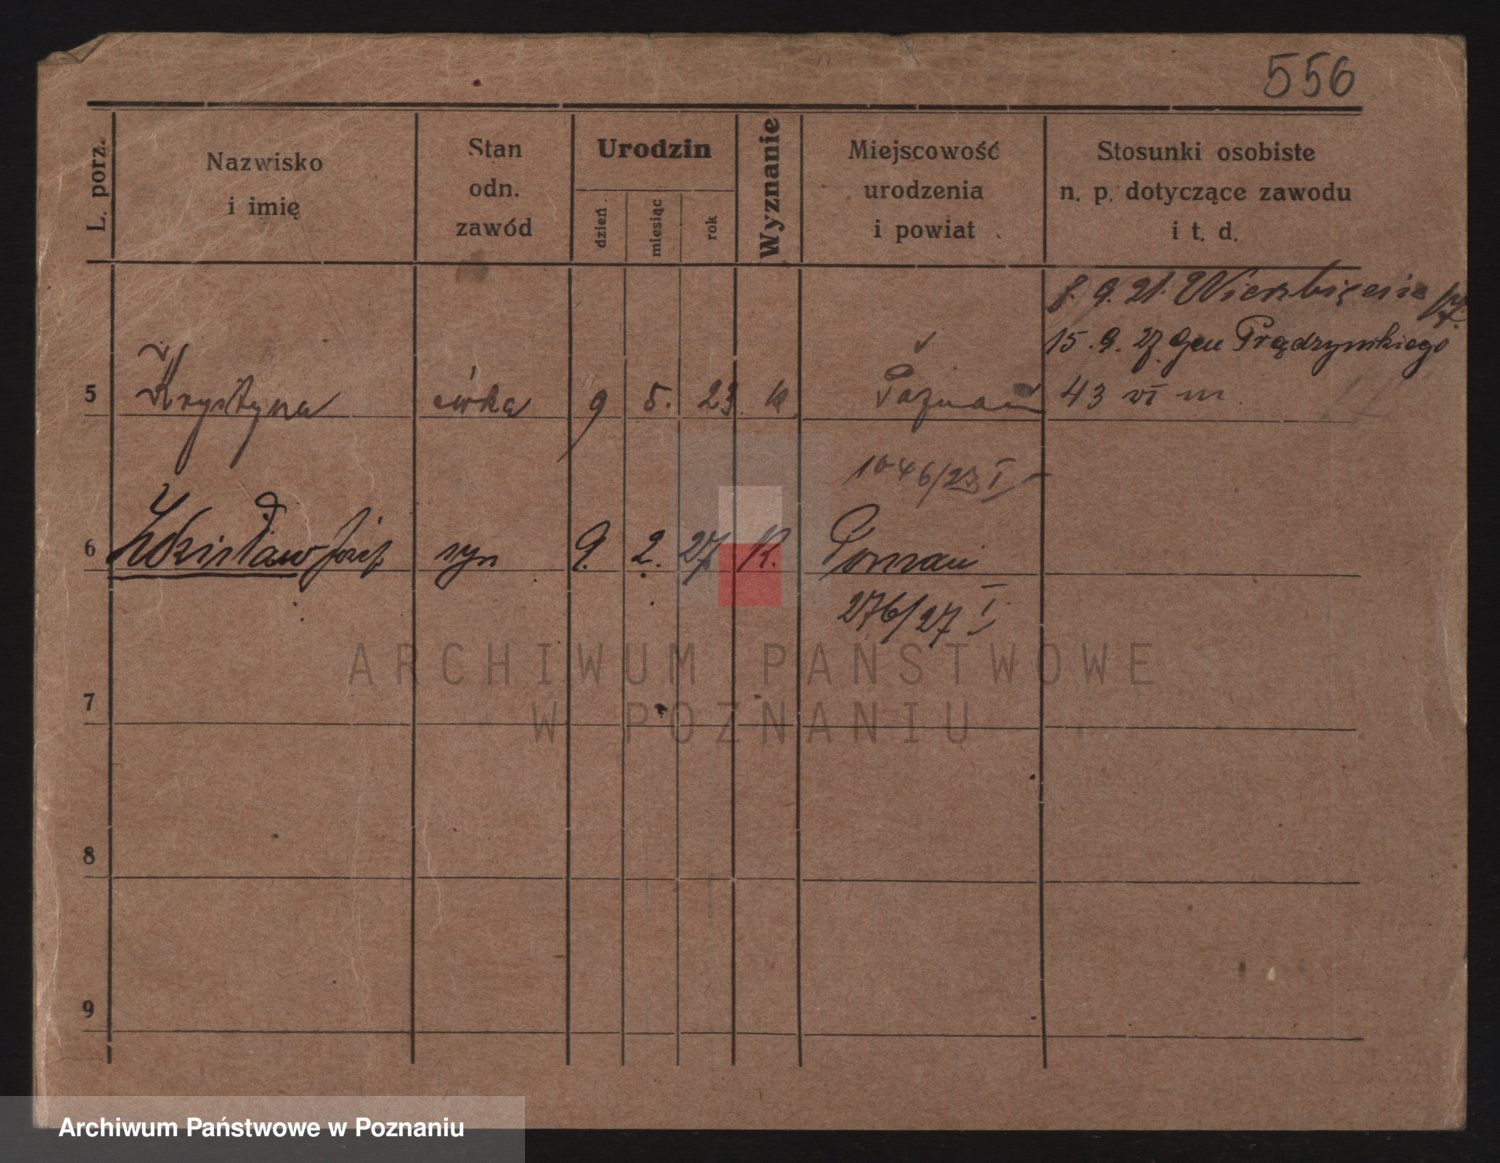 556
L. porz.
Nazwisko
i imię
Stan
odn.
zawód
Urodzin
dzień
miesiąc
rok
Wyznanie
Miejscowość
urodzenia
i powiat
Stosunki osobiste
n. p. dotyczące zawodu
i t. d.
8. 9. 21. Wierzbięcice
15. 9. 27. Gen Prądzyńskiego
5 Krystyna córka 9 5. 23 k Poznań 43 VI m.
1046/23 I
6 Zdzisław Józef syn 9. 2. 27 k. Poznań
276/27 I
ARCHIWUM PAŃSTWOWE
W POZNANIU
7
8
9
Archiwum Państwowe w Poznaniu